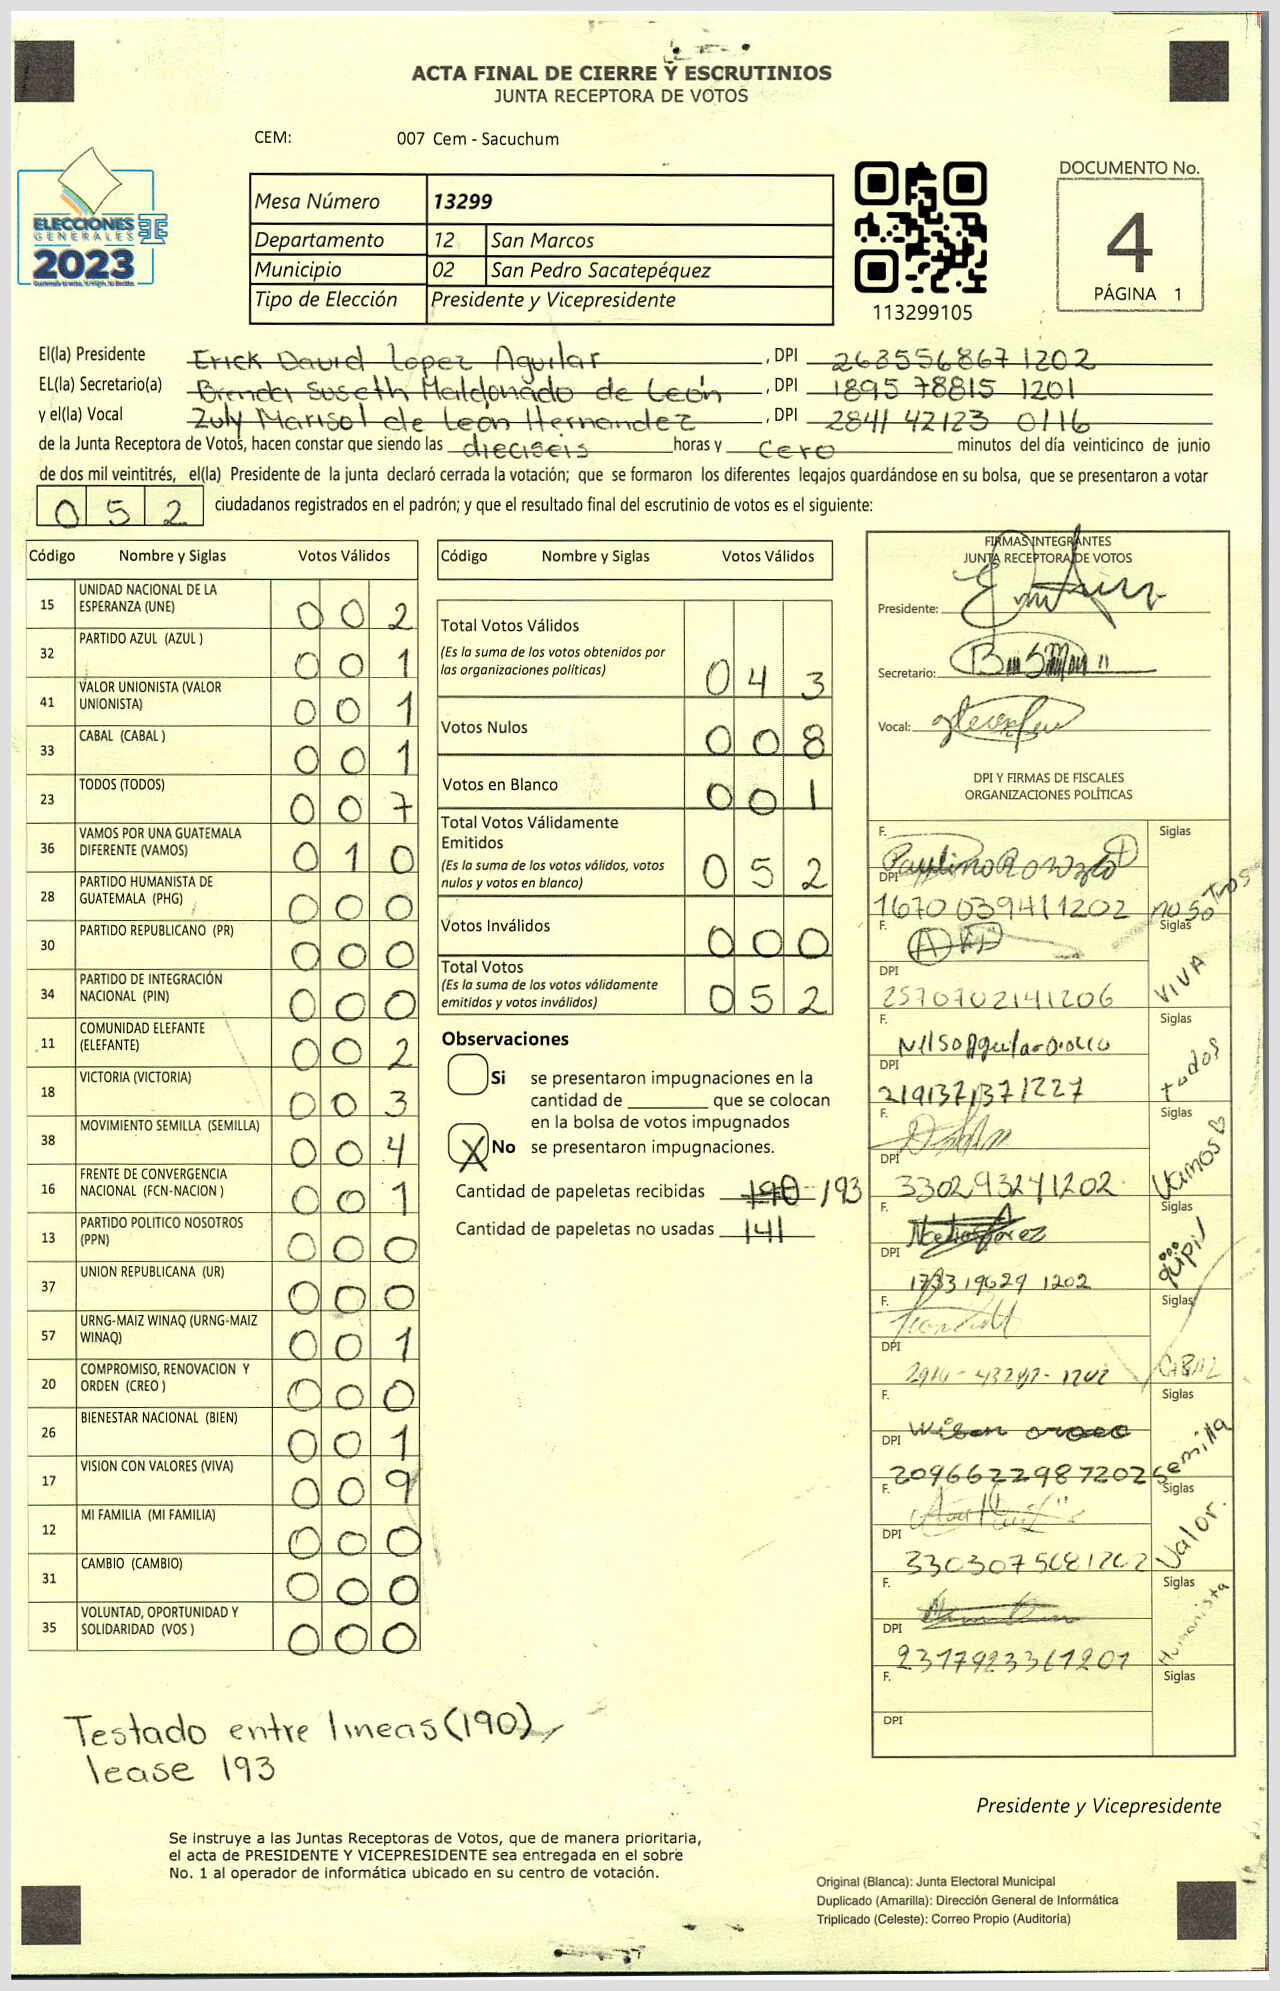 ACTA FINAL DE CIERRE Y ESCRUTINIOS
JUNTA RECEPTORA DE VOTOS
CEM: 007 Cem - Sacuchum
ELECCIONES
GENERALES
2023
Mesa Número 13299
Departamento 12 San Marcos
Municipio 02 San Pedro Sacatepéquez
Tipo de Elección Presidente y Vicepresidente
113299105
DOCUMENTO No.
4
PÁGINA 1
El(la) Presidente Erick David Lopez Aguilar, DPI 263556867 1202
EL(la) Secretario(a) Brenda Suseth Maldonado de León, DPI 1895 78815 1201
y el(la) Vocal Zuly Marisol de León Hernandez, DPI 2841 42123 0116
de la Junta Receptora de Votos, hacen constar que siendo las dieciseis horas y cero minutos del día veinticinco de junio
de dos mil veintitrés, el(la) Presidente de la junta declaró cerrada la votación; que se formaron los diferentes legajos guardándose en su bolsa, que se presentaron a votar
052 ciudadanos registrados en el padrón; y que el resultado final del escrutinio de votos es el siguiente:
Código Nombre y Siglas Votos Válidos
15 UNIDAD NACIONAL DE LA
ESPERANZA (UNE) 002
32 PARTIDO AZUL (AZUL ) 001
41 VALOR UNIONISTA (VALOR
UNIONISTA) 001
33 CABAL (CABAL ) 001
23 TODOS (TODOS) 007
36 VAMOS POR UNA GUATEMALA
DIFERENTE (VAMOS) 010
28 PARTIDO HUMANISTA DE
GUATEMALA (PHG) 000
30 PARTIDO REPUBLICANO (PR) 000
34 PARTIDO DE INTEGRACIÓN
NACIONAL (PIN) 000
11 COMUNIDAD ELEFANTE
(ELEFANTE) 002
18 VICTORIA (VICTORIA) 003
38 MOVIMIENTO SEMILLA (SEMILLA) 004
16 FRENTE DE CONVERGENCIA
NACIONAL (FCN-NACION ) 001
13 PARTIDO POLITICO NOSOTROS
(PPN) 000
37 UNION REPUBLICANA (UR) 000
57 URNG-MAIZ WINAQ (URNG-MAIZ
WINAQ) 001
20 COMPROMISO, RENOVACION Y
ORDEN (CREO ) 000
26 BIENESTAR NACIONAL (BIEN) 001
17 VISION CON VALORES (VIVA) 009
12 MI FAMILIA (MI FAMILIA) 000
31 CAMBIO (CAMBIO) 000
35 VOLUNTAD, OPORTUNIDAD Y
SOLIDARIDAD (VOS ) 000
Código Nombre y Siglas Votos Válidos
Total Votos Válidos
(Es la suma de los votos obtenidos por
las organizaciones políticas) 043
Votos Nulos 008
Votos en Blanco 001
Total Votos Válidamente
Emitidos
(Es la suma de los votos válidos, votos
nulos y votos en blanco) 052
Votos Inválidos 000
Total Votos
(Es la suma de los votos válidamente
emitidos y votos inválidos) 052
Observaciones
Si se presentaron impugnaciones en la
cantidad de ________ que se colocan
en la bolsa de votos impugnados
X No se presentaron impugnaciones.
Cantidad de papeletas recibidas 190 193
Cantidad de papeletas no usadas 141
FIRMAS INTEGRANTES
JUNTA RECEPTORA DE VOTOS
Presidente:
Secretario:
Vocal:
DPI Y FIRMAS DE FISCALES
ORGANIZACIONES POLÍTICAS
F. Siglas
DPI 1670 039411202 nosotros
F. Siglas
DPI 2570702141206 VIVA
F. Siglas
DPI 2191371371227 todos
F. Siglas
DPI 330293241202 Vamos
F. Siglas
DPI 173319629 1202
F. Siglas
DPI CABAL
F. Wilson Orozco Siglas
DPI 2096622987202 semilla
F. Siglas
DPI 3303075681202 Valor.
F. Siglas
DPI 2317923361201 Humanista
F. Siglas
DPI
Testado entre lineas (190)
lease 193
Presidente y Vicepresidente
Se instruye a las Juntas Receptoras de Votos, que de manera prioritaria,
el acta de PRESIDENTE Y VICEPRESIDENTE sea entregada en el sobre
No. 1 al operador de informática ubicado en su centro de votación.
Original (Blanca): Junta Electoral Municipal
Duplicado (Amarilla): Dirección General de Informática
Triplicado (Celeste): Correo Propio (Auditoría)